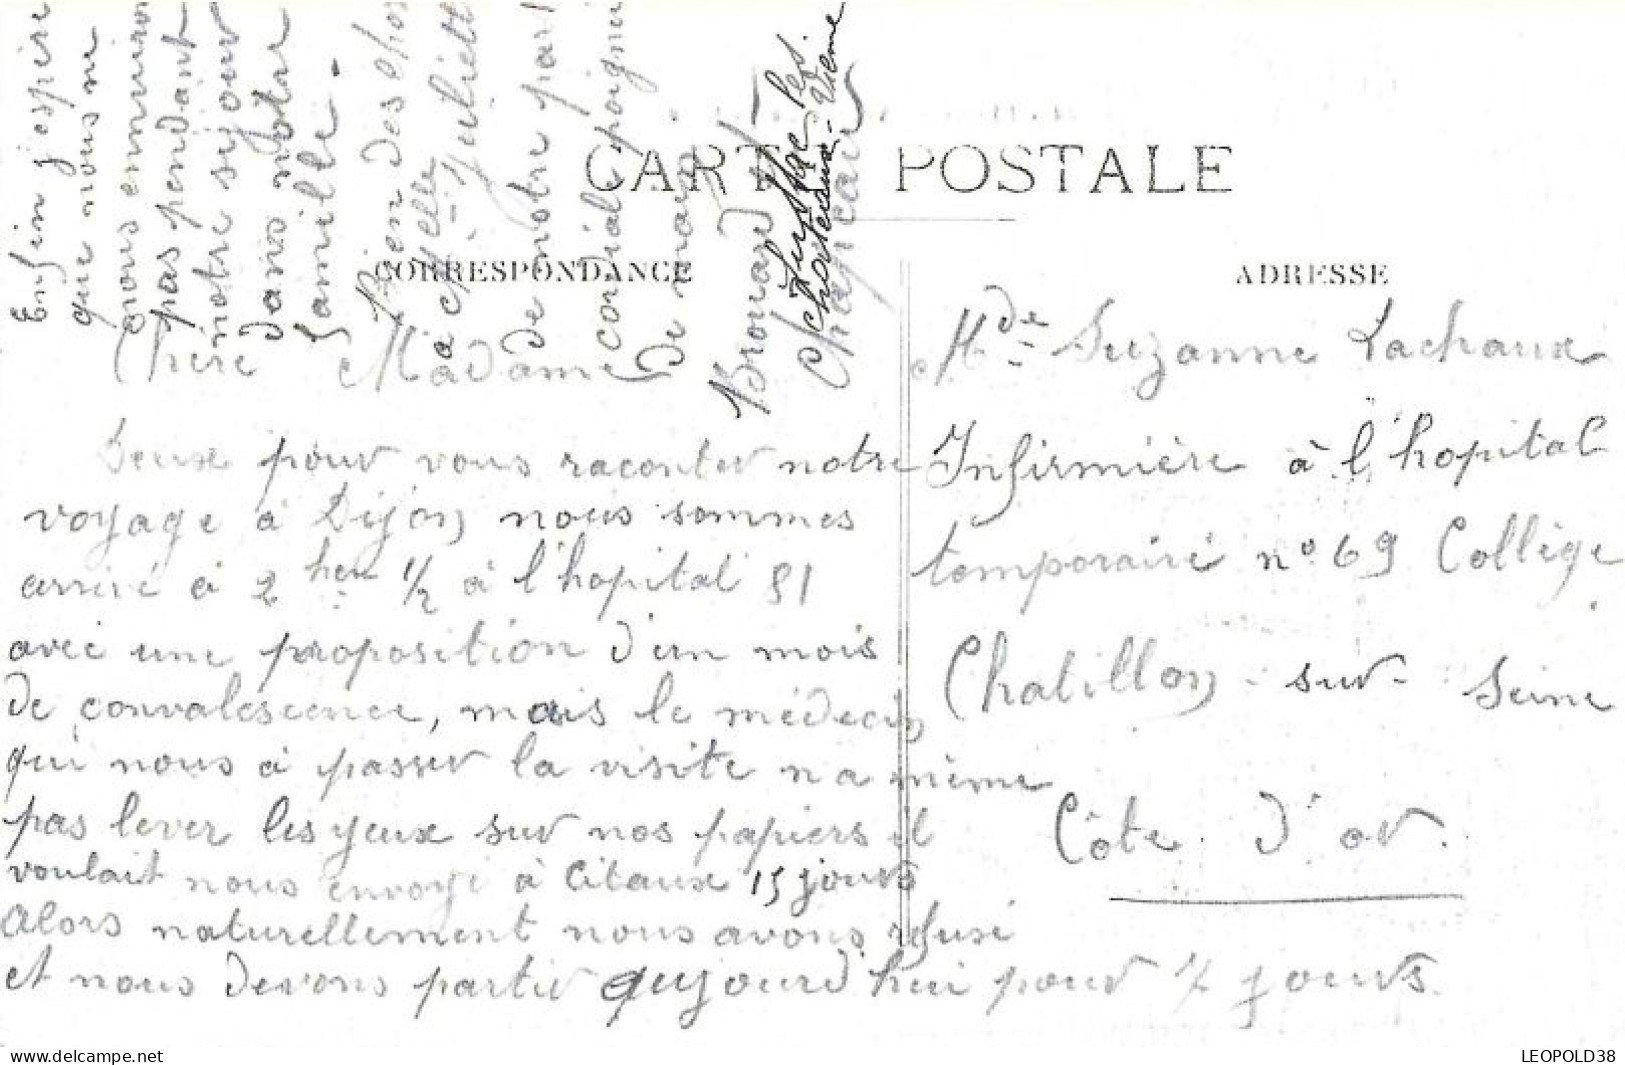 CARTE POSTALE
CORRESPONDANCE
ADRESSE
Chère Madame
Deux pour vous raconter notre
voyage à Dijon nous sommes
arrivé à 2 heu 1/2 à l'hopital 81
avec une proposition d'un mois
de convalescence, mais le médecin
qui nous à passer la visite n a même
pas lever les yeux sur nos papiers il
voulait nous envoye à Citaux 15 jours
Alors naturellement nous avons refusé
et nous devons partir aujourd'hui pour 7 jours.
Enfin j'espère
que nous ne
nous ennuiron
pas pendant
notre séjour
dans notre
famille.
Bien des cho
à Melle Juliette
de notre part
cordiale poignée
de main
Brouard
Mde Suzanne Lachaux
Infirmière à l'hopital
temporaire n° 69 Collège
Chatillon - sur - Seine
Côte d'or.
www.delcampe.net
LEOPOLD38